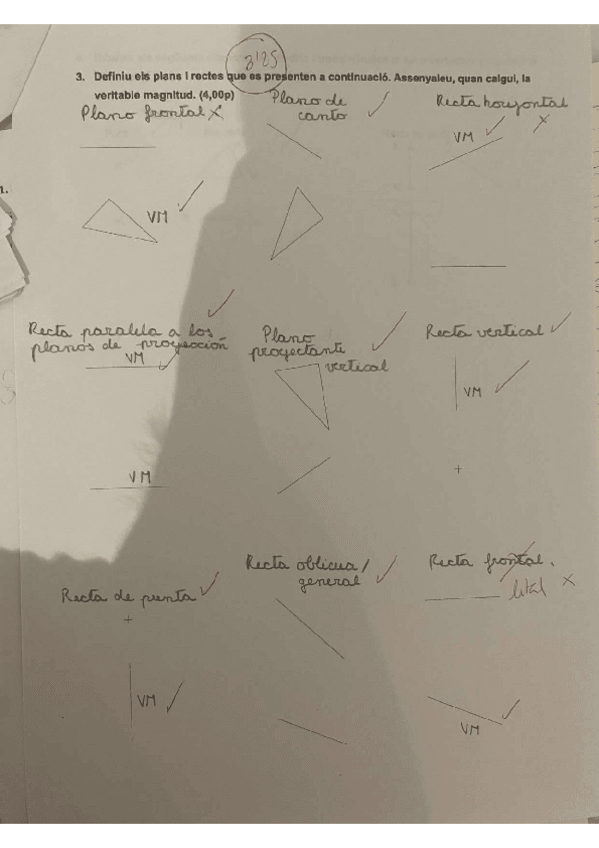 3'25
3. Definiu els plans i rectes que es presenten a continuació. Assenyaleu, quan calgui, la
veritable magnitud. (4,00p)
Plano frontal
Plano de
canto
Recta horizontal
VM
VM
1.
Recta paralela a los
planos de proyección
VM
Plano
proyectante
vertical
Recta vertical
VM
VM
Recta de punta
Recta oblicua/
general
Recta frontal.
VM
VM